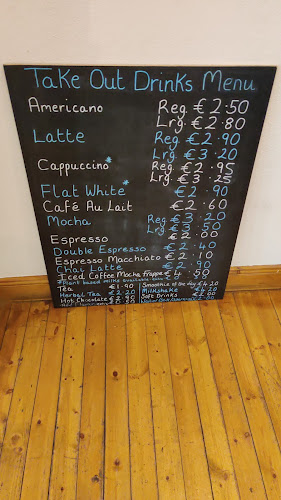 Take Out Drinks Menu
Americano Reg. €2.50
Lrg. €2.80
Latte Reg €2.90
Lrg. €3.20
Cappuccino* Reg. €2.95
Lrg. €3.25
Flat White* €2.90
Café Au Lait €2.60
Mocha Reg €3.20
Lrg €3.50
Espresso €2.00
Double Espresso €2.40
Espresso Macchiato €2.10
Chai Latte €2.90
Iced Coffee/Mocha frappe €4.50
*Plant based milks available
Tea €1.90
Smoothie of the day €4.20
Herbal Tea €2.20
Milkshake €4.20
Hot Chocolate €2.90
Soft Drinks €2.00